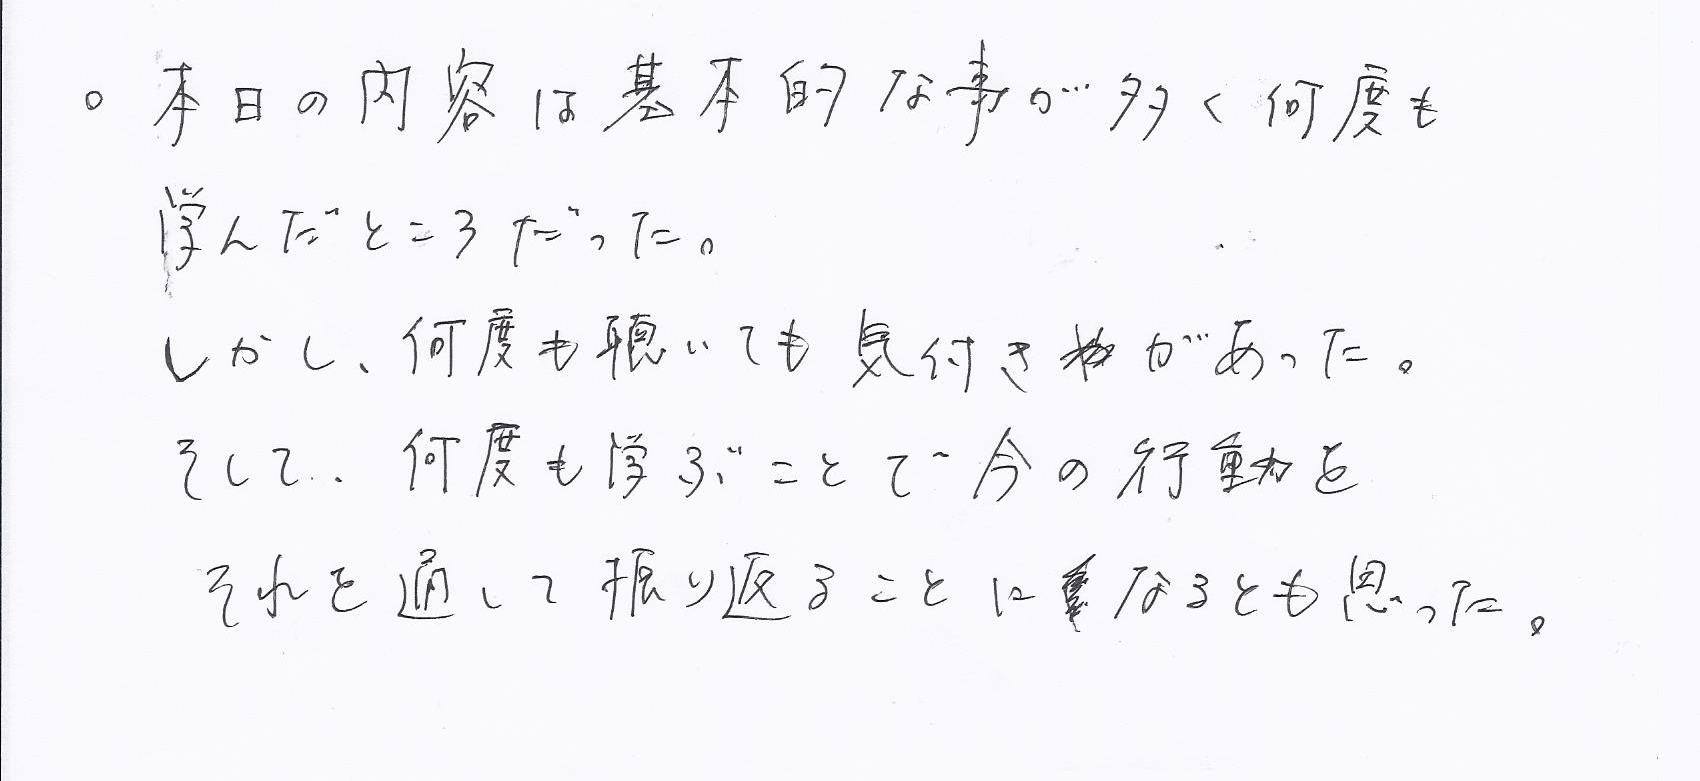 ○ 本日の内容は基本的な事が多く何度も
学んだところだった。
しかし、何度も聴いても気付きがあった。
そして、何度も学ぶことで今の行動を
それを通して振り返ることになるとも思った。